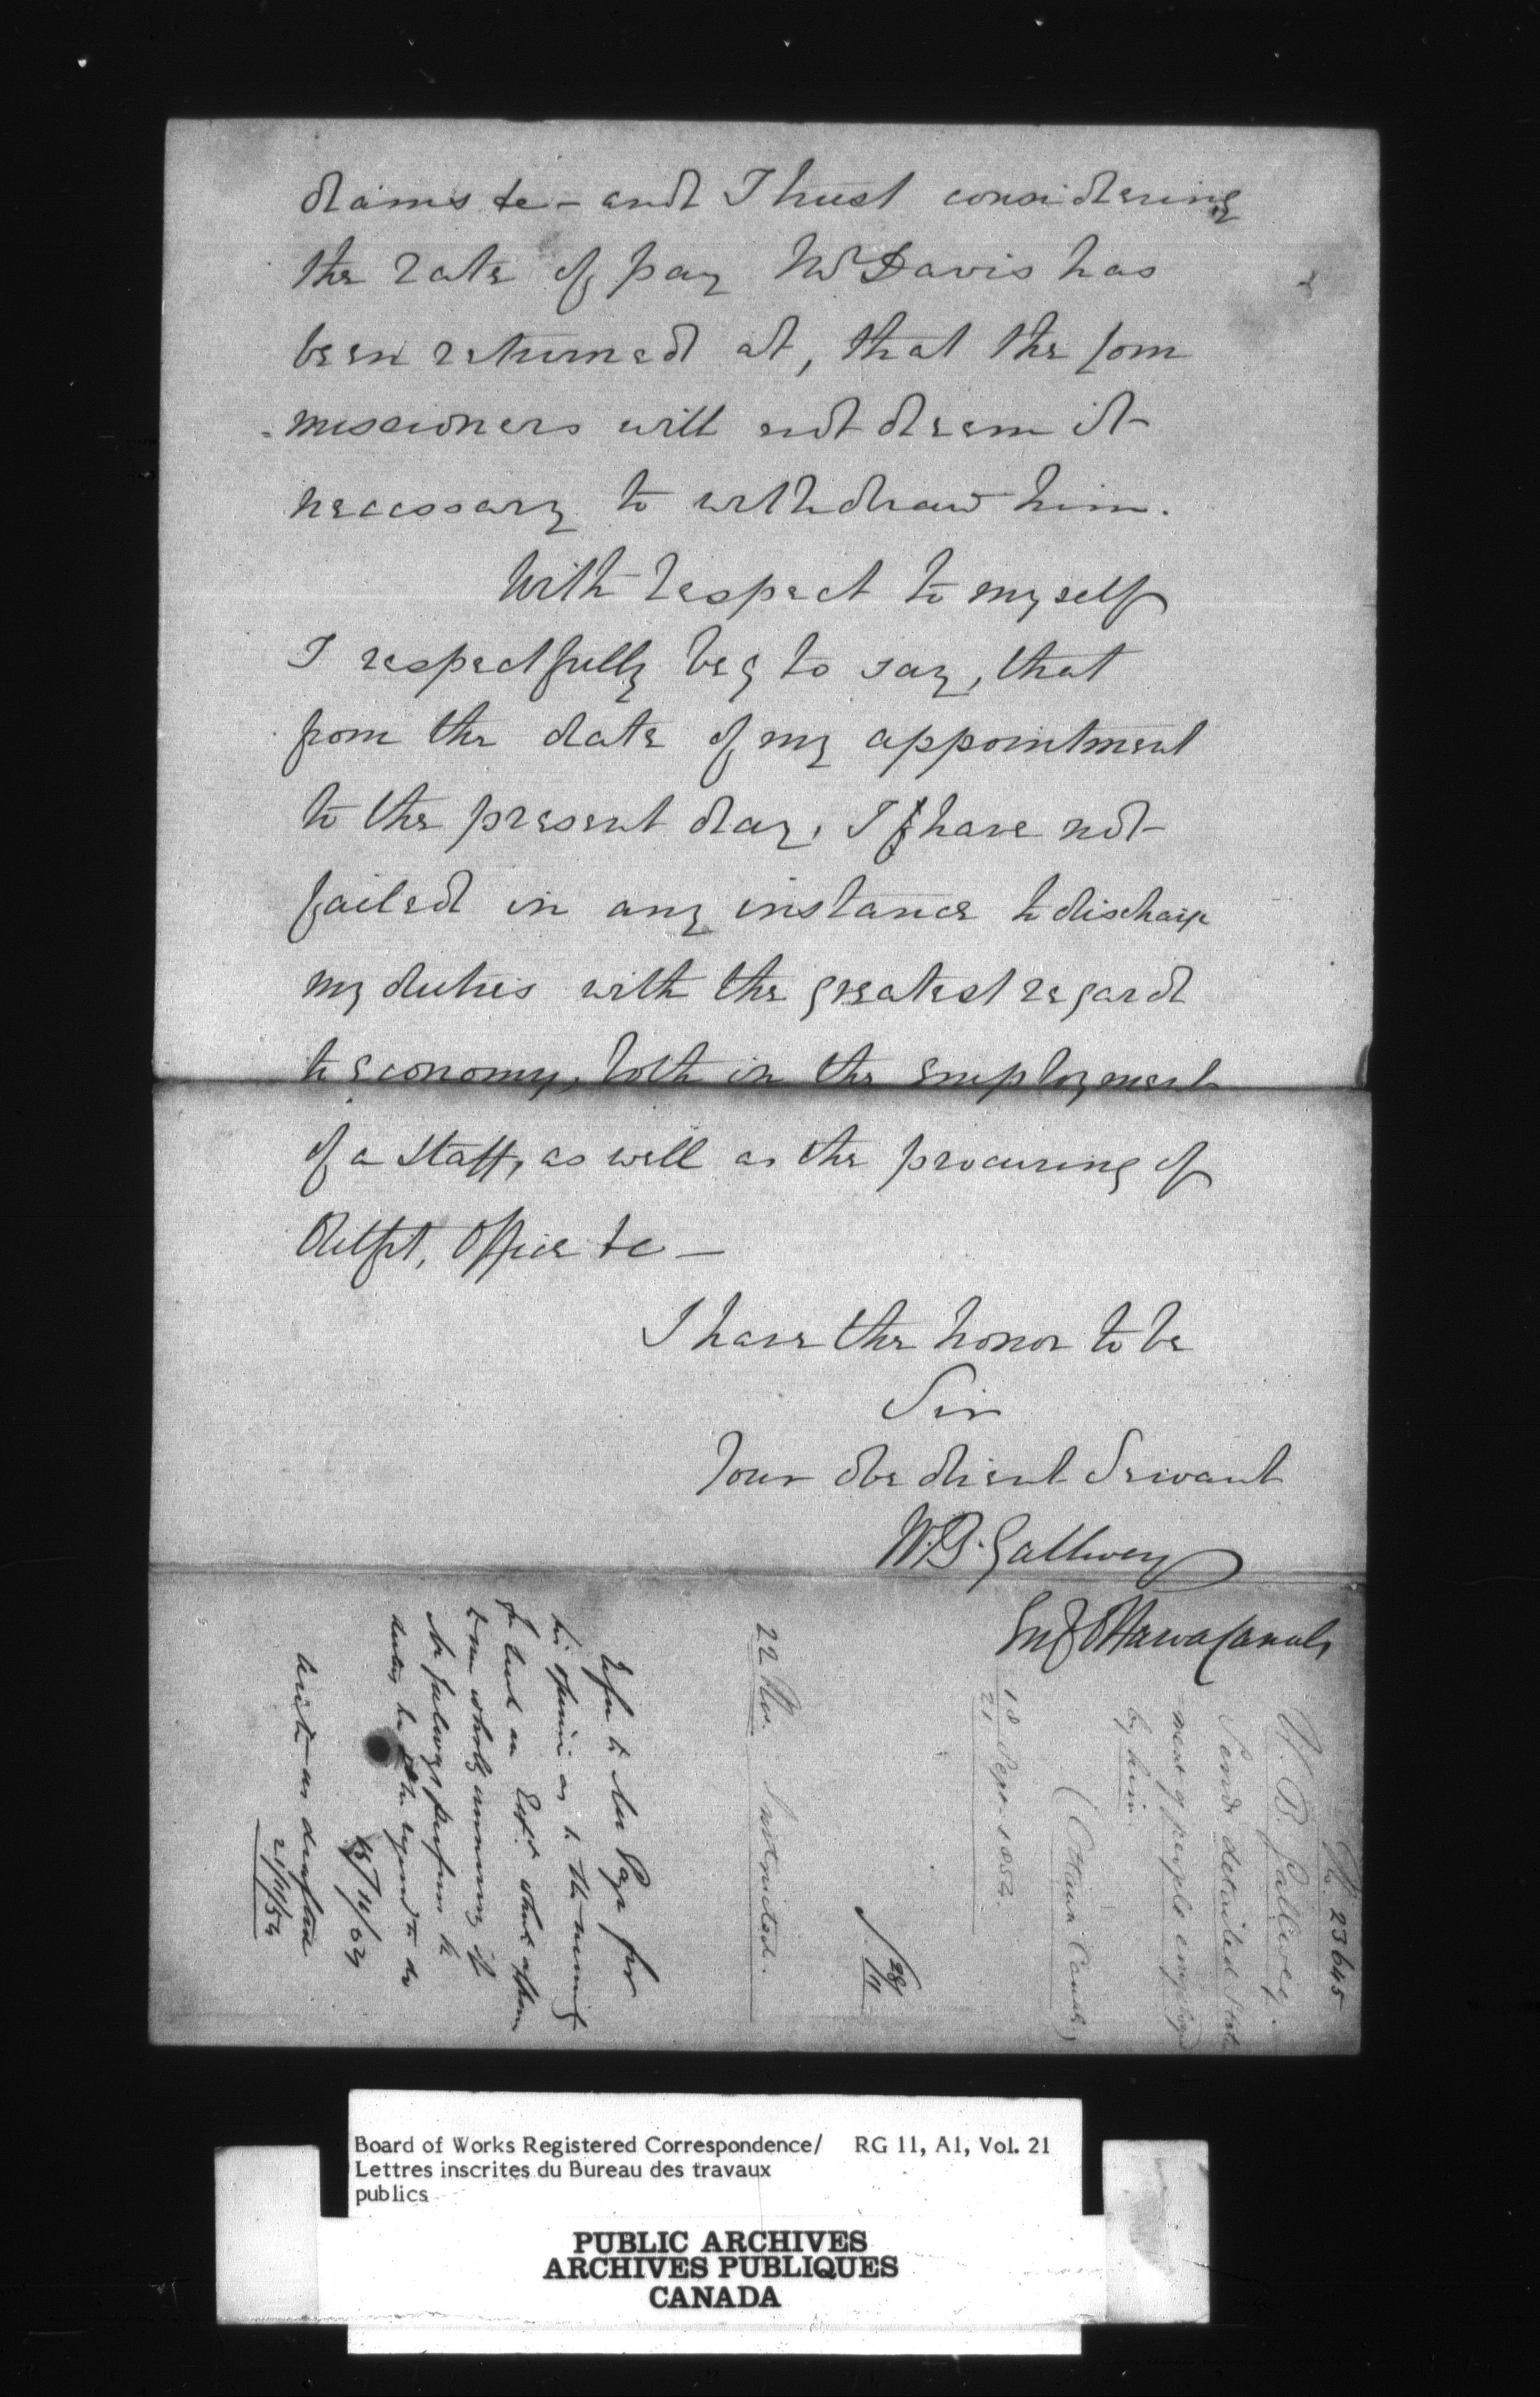 claims &c - and I trust considering
the rate of pay Mr Davis has
been returned at, that the Com
-missioners will not deem it
necessary to withdraw him.
With respect to myself
I respectfully beg to say, that
from the date of my appointment
to the present day, I have not
failed in any instance to discharge
my duties with the greatest regard
to economy, both in the employment
of a Staff, as well as the procuring of
Outfit, Office &c -
I have the honor to be
Sir
Your obedient Servant
W.B. Gallwey
Eng Ottawa Canals
No. 23645
W. B. Gallwey.
Sends detailed State
ment of people employed
by him
(Ottawa Canals)
18 Sept. 1854.
21
28
11
22 Nov. Instructed.
Refer to Mr Page for
his opinion as to the
Mr Gallwey perform the
duties
Write as drafted
21/11/54
Board of Works Registered Correspondence/ RG 11, A1, Vol. 21
Lettres inscrites du Bureau des travaux
publics
PUBLIC ARCHIVES
ARCHIVES PUBLIQUES
CANADA